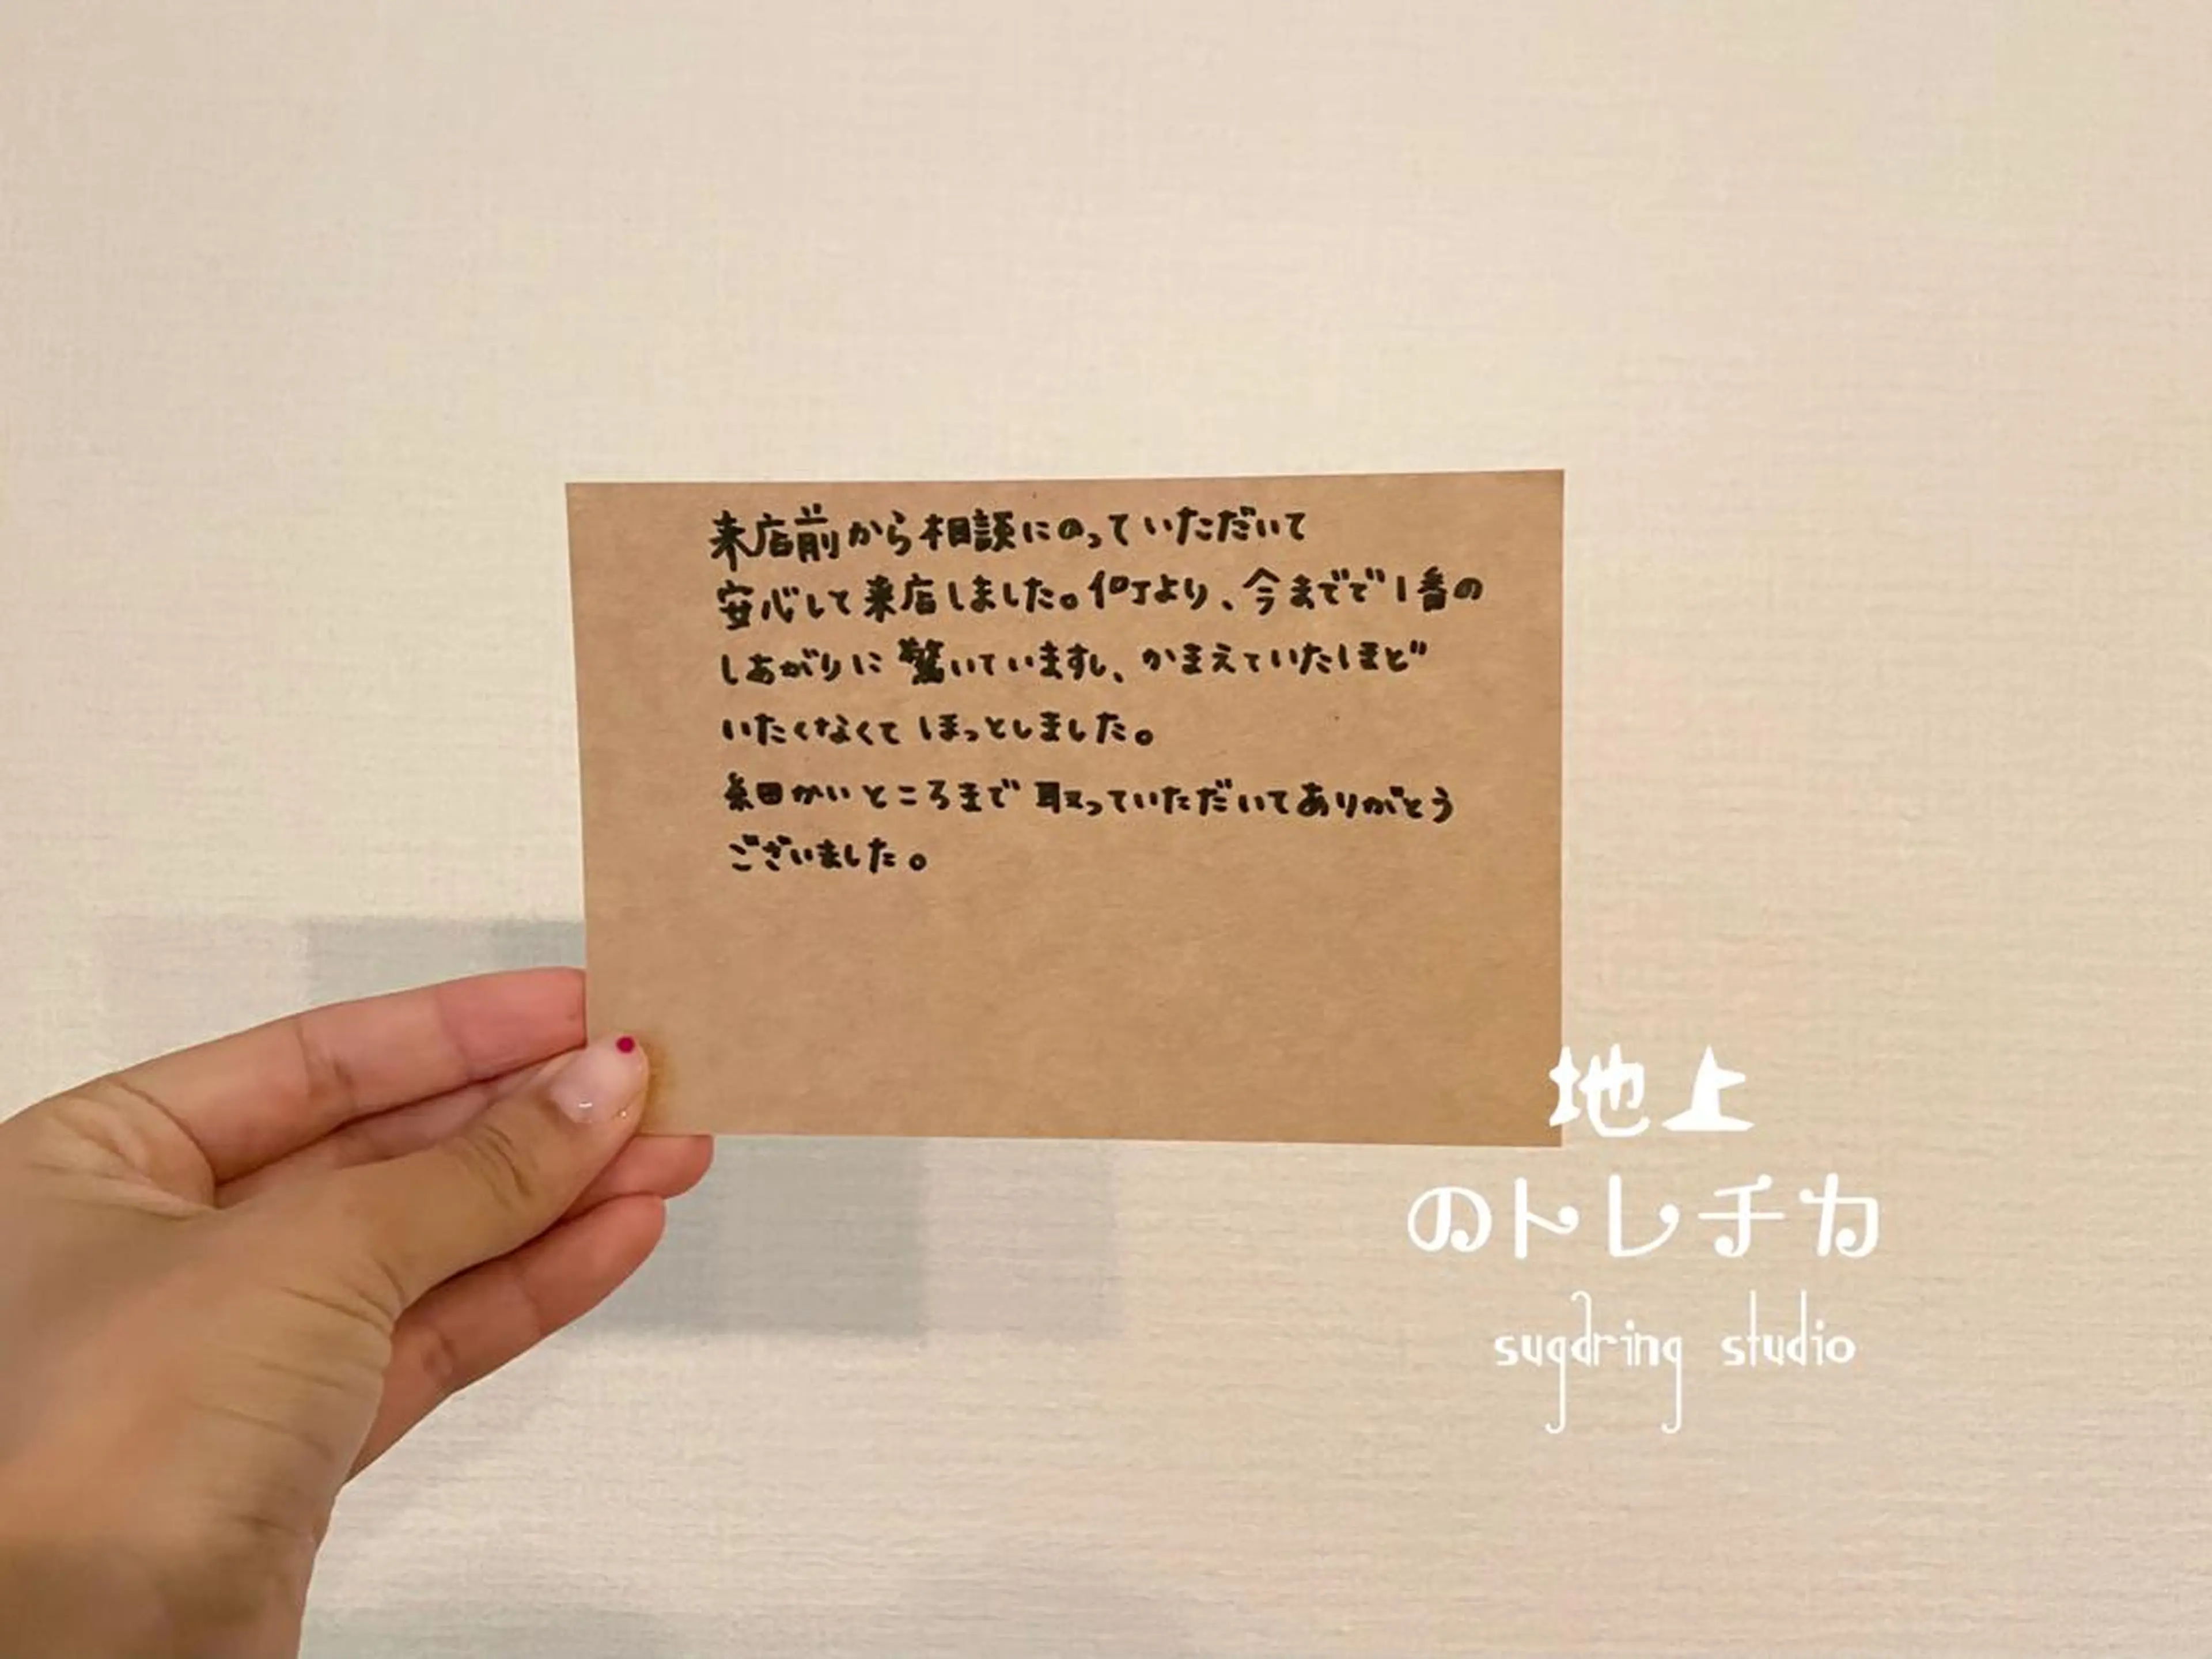 来店前から相談にのっていただいて
安心して来店しました。何より、今までで1番の
しあがりに驚いていますし、かまえていたほど
いたくなくてほっとしました。
細かいところまで取っていただいてありがとう
ございました。
地上
のトレチカ
sugaring studio